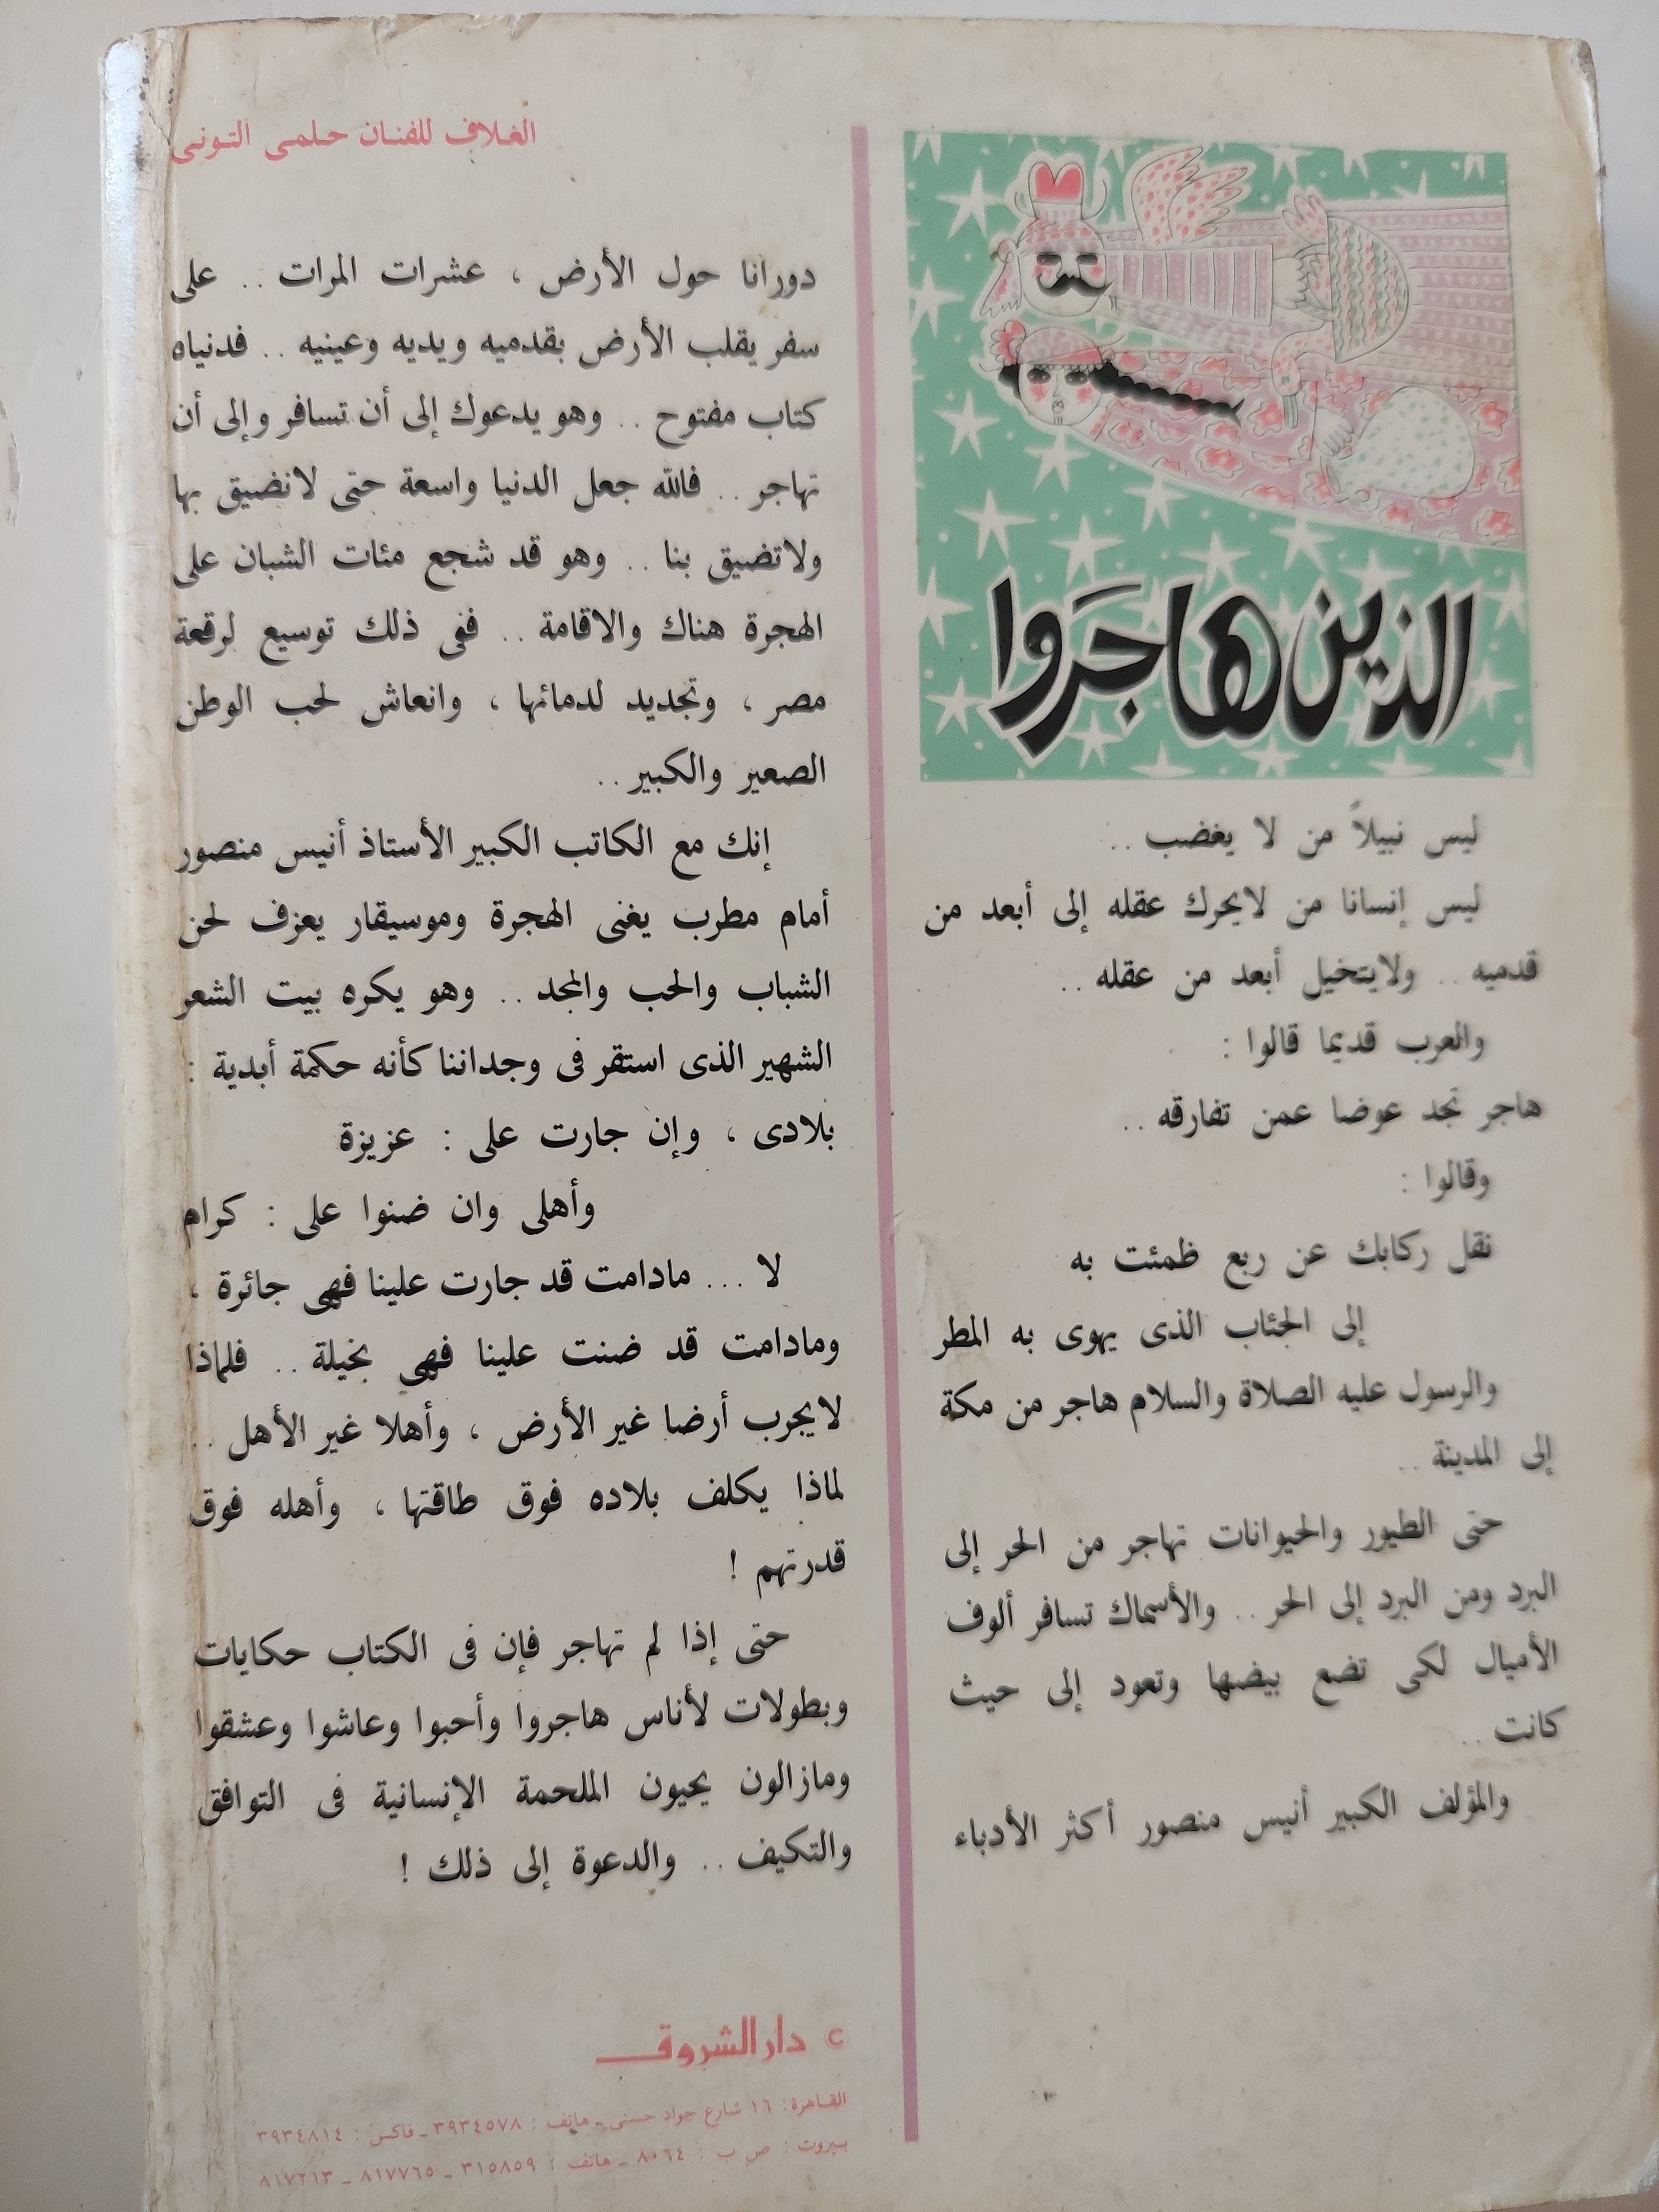 الذين هاجروا
ليس نبيلاً من لا يغضب ..
ليس إنسانا من لايحرك عقله إلى أبعد من
قدميه .. ولايتخيل أبعد من عقله ..
والعرب قديما قالوا :
هاجر تجد عوضا عمن تفارقه ..
وقالوا :
نقل ركابك عن ربع ظمئت به
إلى الجئاب الذى يهوى به المطر
والرسول عليه الصلاة والسلام هاجر من مكة
إلى المدينة ..
حتى الطيور والحيوانات تهاجر من الحر إلى
البرد ومن البرد إلى الحر .. والأسماك تسافر ألوف
الأميال لكى تضع بيضها وتعود إلى حيث
كانت ..
والمؤلف الكبير أنيس منصور أكثر الأدباء
الغلاف للفنان حلمى التونى
دورانا حول الأرض ، عشرات المرات .. على
سفر يقلب الأرض بقدميه ويديه وعينيه .. فدنياه
كتاب مفتوح .. وهو يدعوك إلى أن تسافر وإلى أن
تهاجر .. فالله جعل الدنيا واسعة حتى لانضيق بها
ولاتضيق بنا .. وهو قد شجع مئات الشبان على
الهجرة هناك والاقامة .. ففى ذلك توسيع لرقعة
مصر ، وتجديد لدمائها ، وانعاش لحب الوطن
الصغير والكبير ..
إنك مع الكاتب الكبير الأستاذ أنيس منصور
أمام مطرب يغنى الهجرة وموسيقار يعزف لحن
الشباب والحب والمجد .. وهو يكره بيت الشعر
الشهير الذى استقر فى وجداننا كأنه حكمة أبدية :
بلادى ، وإن جارت على : عزيزة
وأهلى وان ضنوا على : كرام
لا ... مادامت قد جارت علينا فهى جائرة ،
ومادامت قد ضنت علينا فهى بخيلة .. فلماذا
لايجرب أرضا غير الأرض ، وأهلا غير الأهل ..
لماذا يكلف بلاده فوق طاقتها ، وأهله فوق
قدرتهم !
حتى إذا لم تهاجر فإن فى الكتاب حكايات
وبطولات لأناس هاجروا وأحبوا وعاشوا وعشقوا
ومازالون يحيون الملحمة الإنسانية فى التوافق
والتكيف .. والدعوة إلى ذلك !
© دار الشروق
القاهرة : ١٦ شارع جواد حسنى - هاتف : ٣٩٣٤٥٧٨ - فاكس : ٣٩٣٤٨١٤
بيروت : ص ب : ٨٠٦٤ - هاتف : ٣١٥٨٥٩ - ٨١٧٧٦٥ - ٨١٧٢١٣